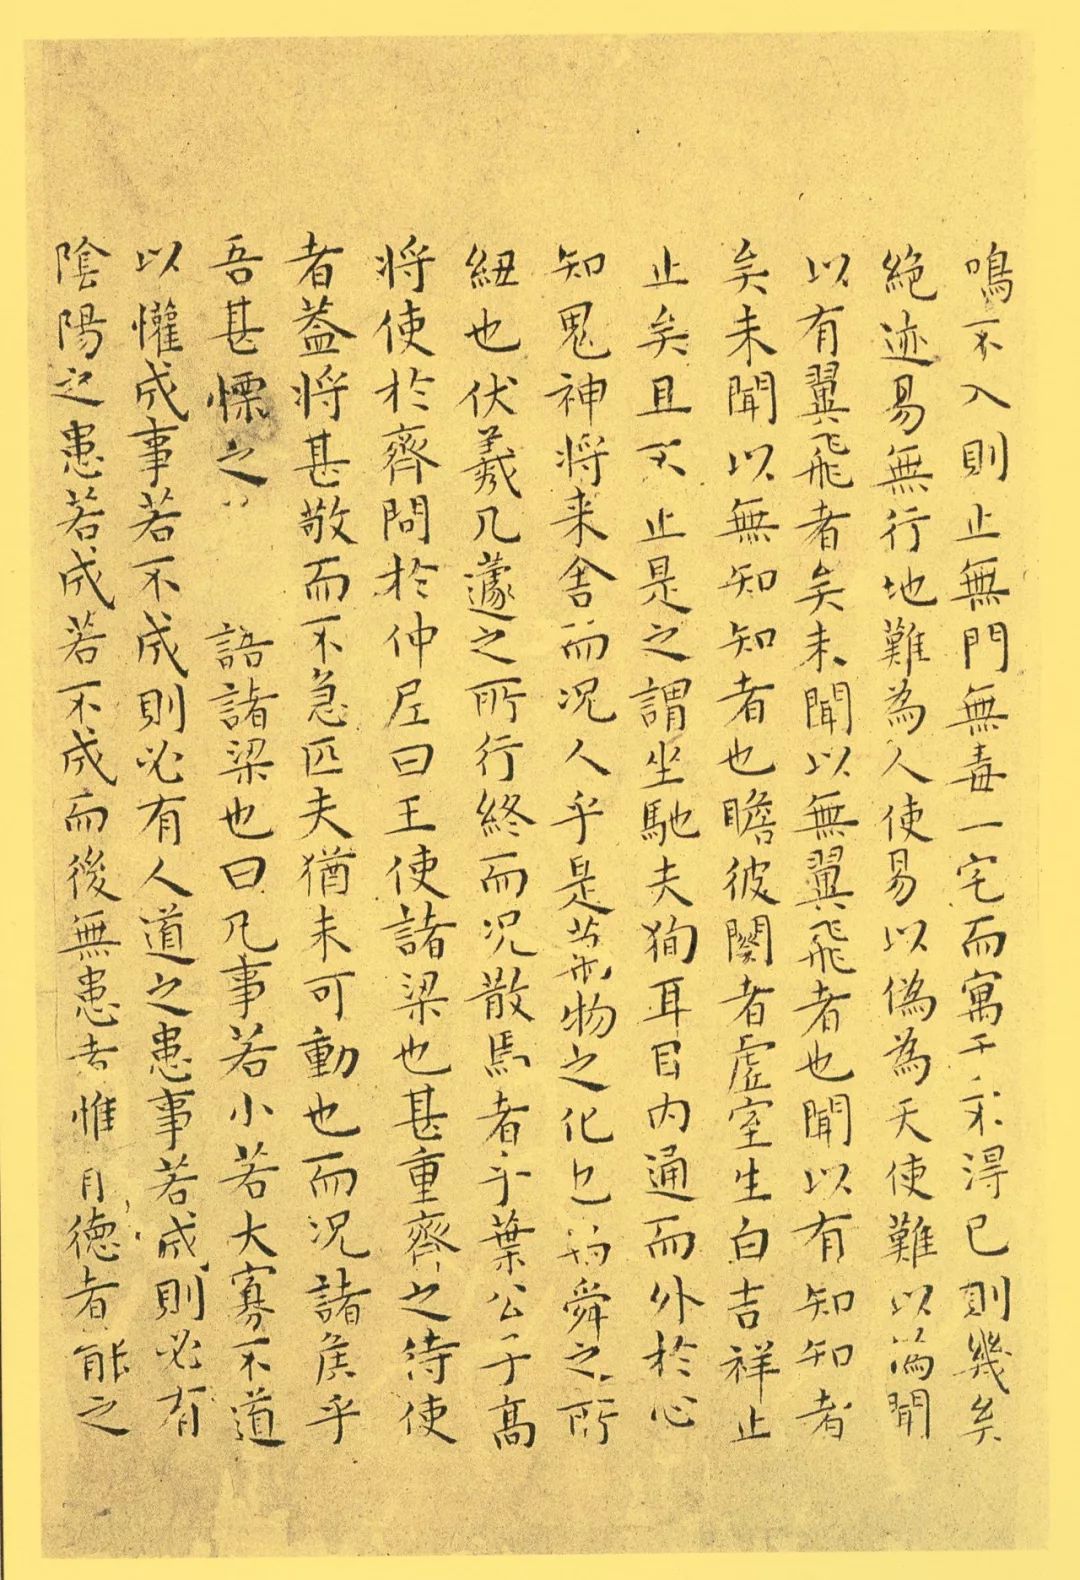 鳴不入則止無門無毒一宅而寓于不得已則幾矣
絶迹易無行地難為人使易以偽為天使難以偽聞
以有翼飛者矣未聞以無翼飛者也聞以有知知者
矣未聞以無知知者也瞻彼闋者虛室生白吉祥止
止矣且不止是之謂坐馳夫狥耳目内通而外於心
知鬼神将来舍而况人乎是萬物之化也禹舜之所
紐也伏羲几蘧之所行終而况散馬者乎葉公子髙
将使於齊問於仲尼曰王使諸梁也甚重齊之待使
者葢将甚敬而不急匹夫猶未可動也而况諸侯乎
吾甚慄之 語諸梁也曰凡事若小若大寡不道
以懽成事若不成則必有人道之患事若成則必有
陰陽之患若成若不成而後無患者惟有徳者能之